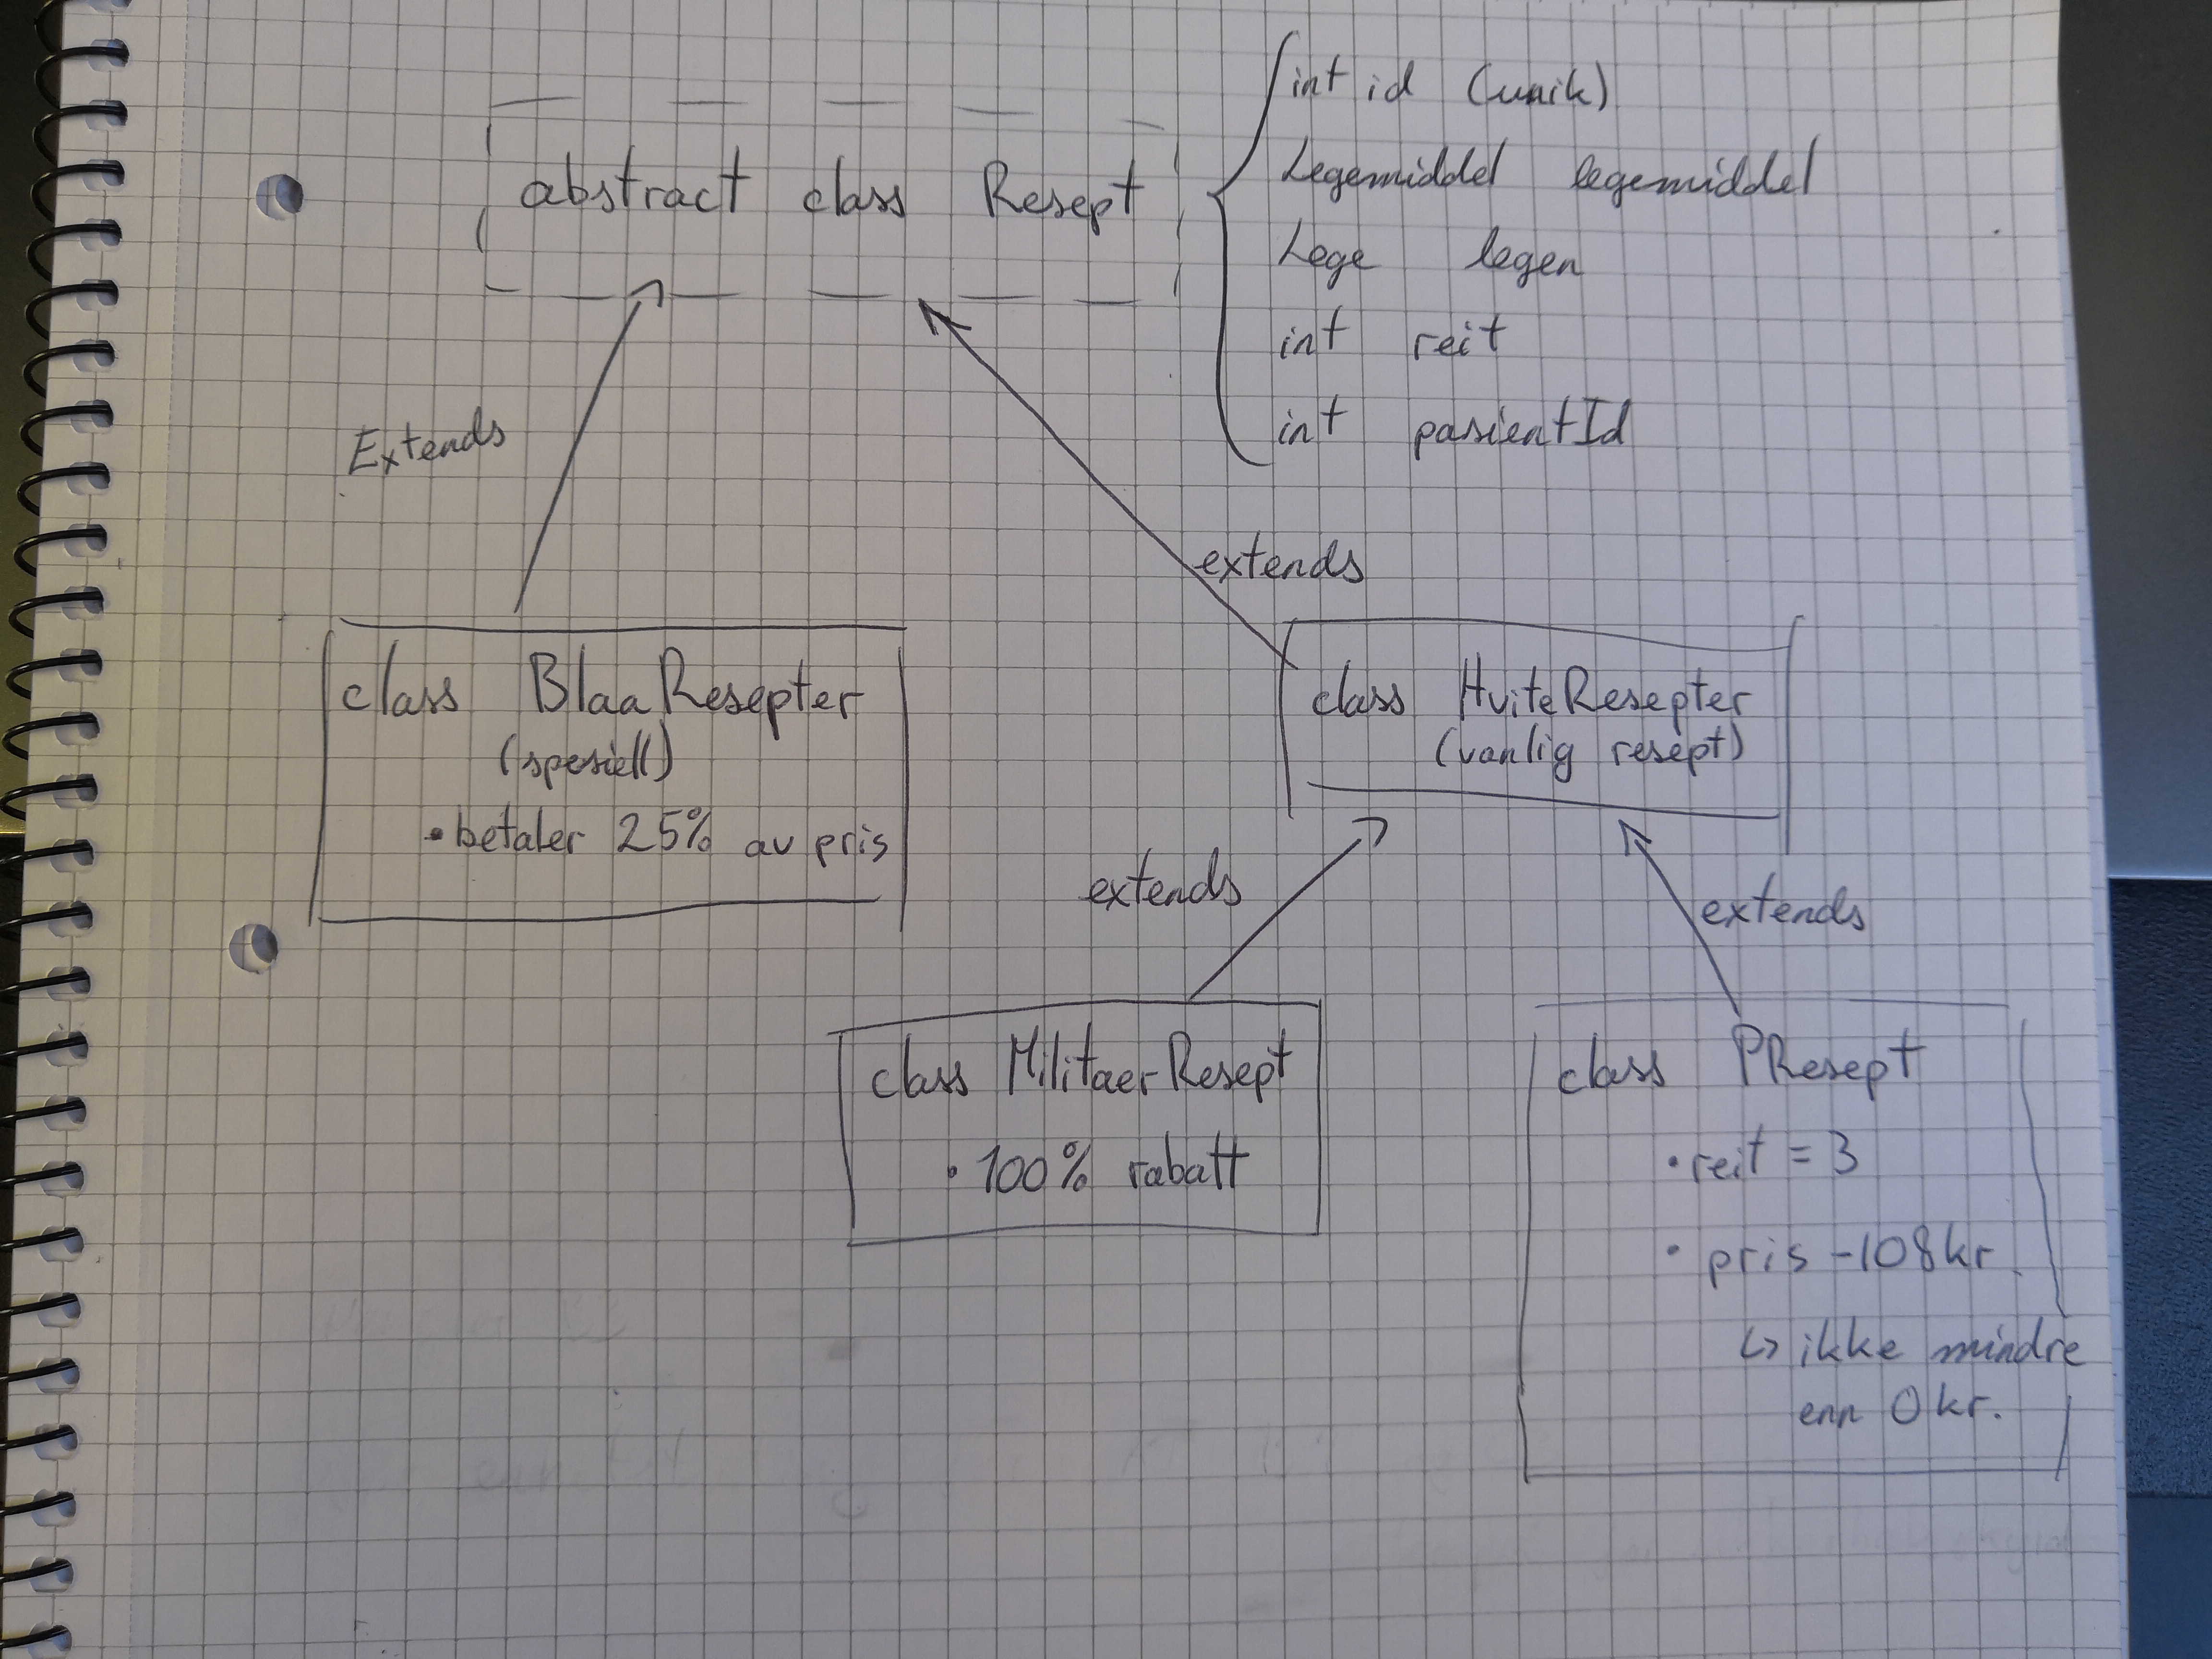 abstract class Resept
int id (unik)
Legemiddel legemiddel
Lege legen
int reit
int pasientId
Extends
extends
class BlaaResepter
(spesiell)
• betaler 25% av pris
class HviteResepter
(vanlig resept)
extends
extends
class MilitaerResept
• 100% rabatt
class PResept
• reit = 3
• pris -108kr.
↳ ikke mindre
enn 0 kr.